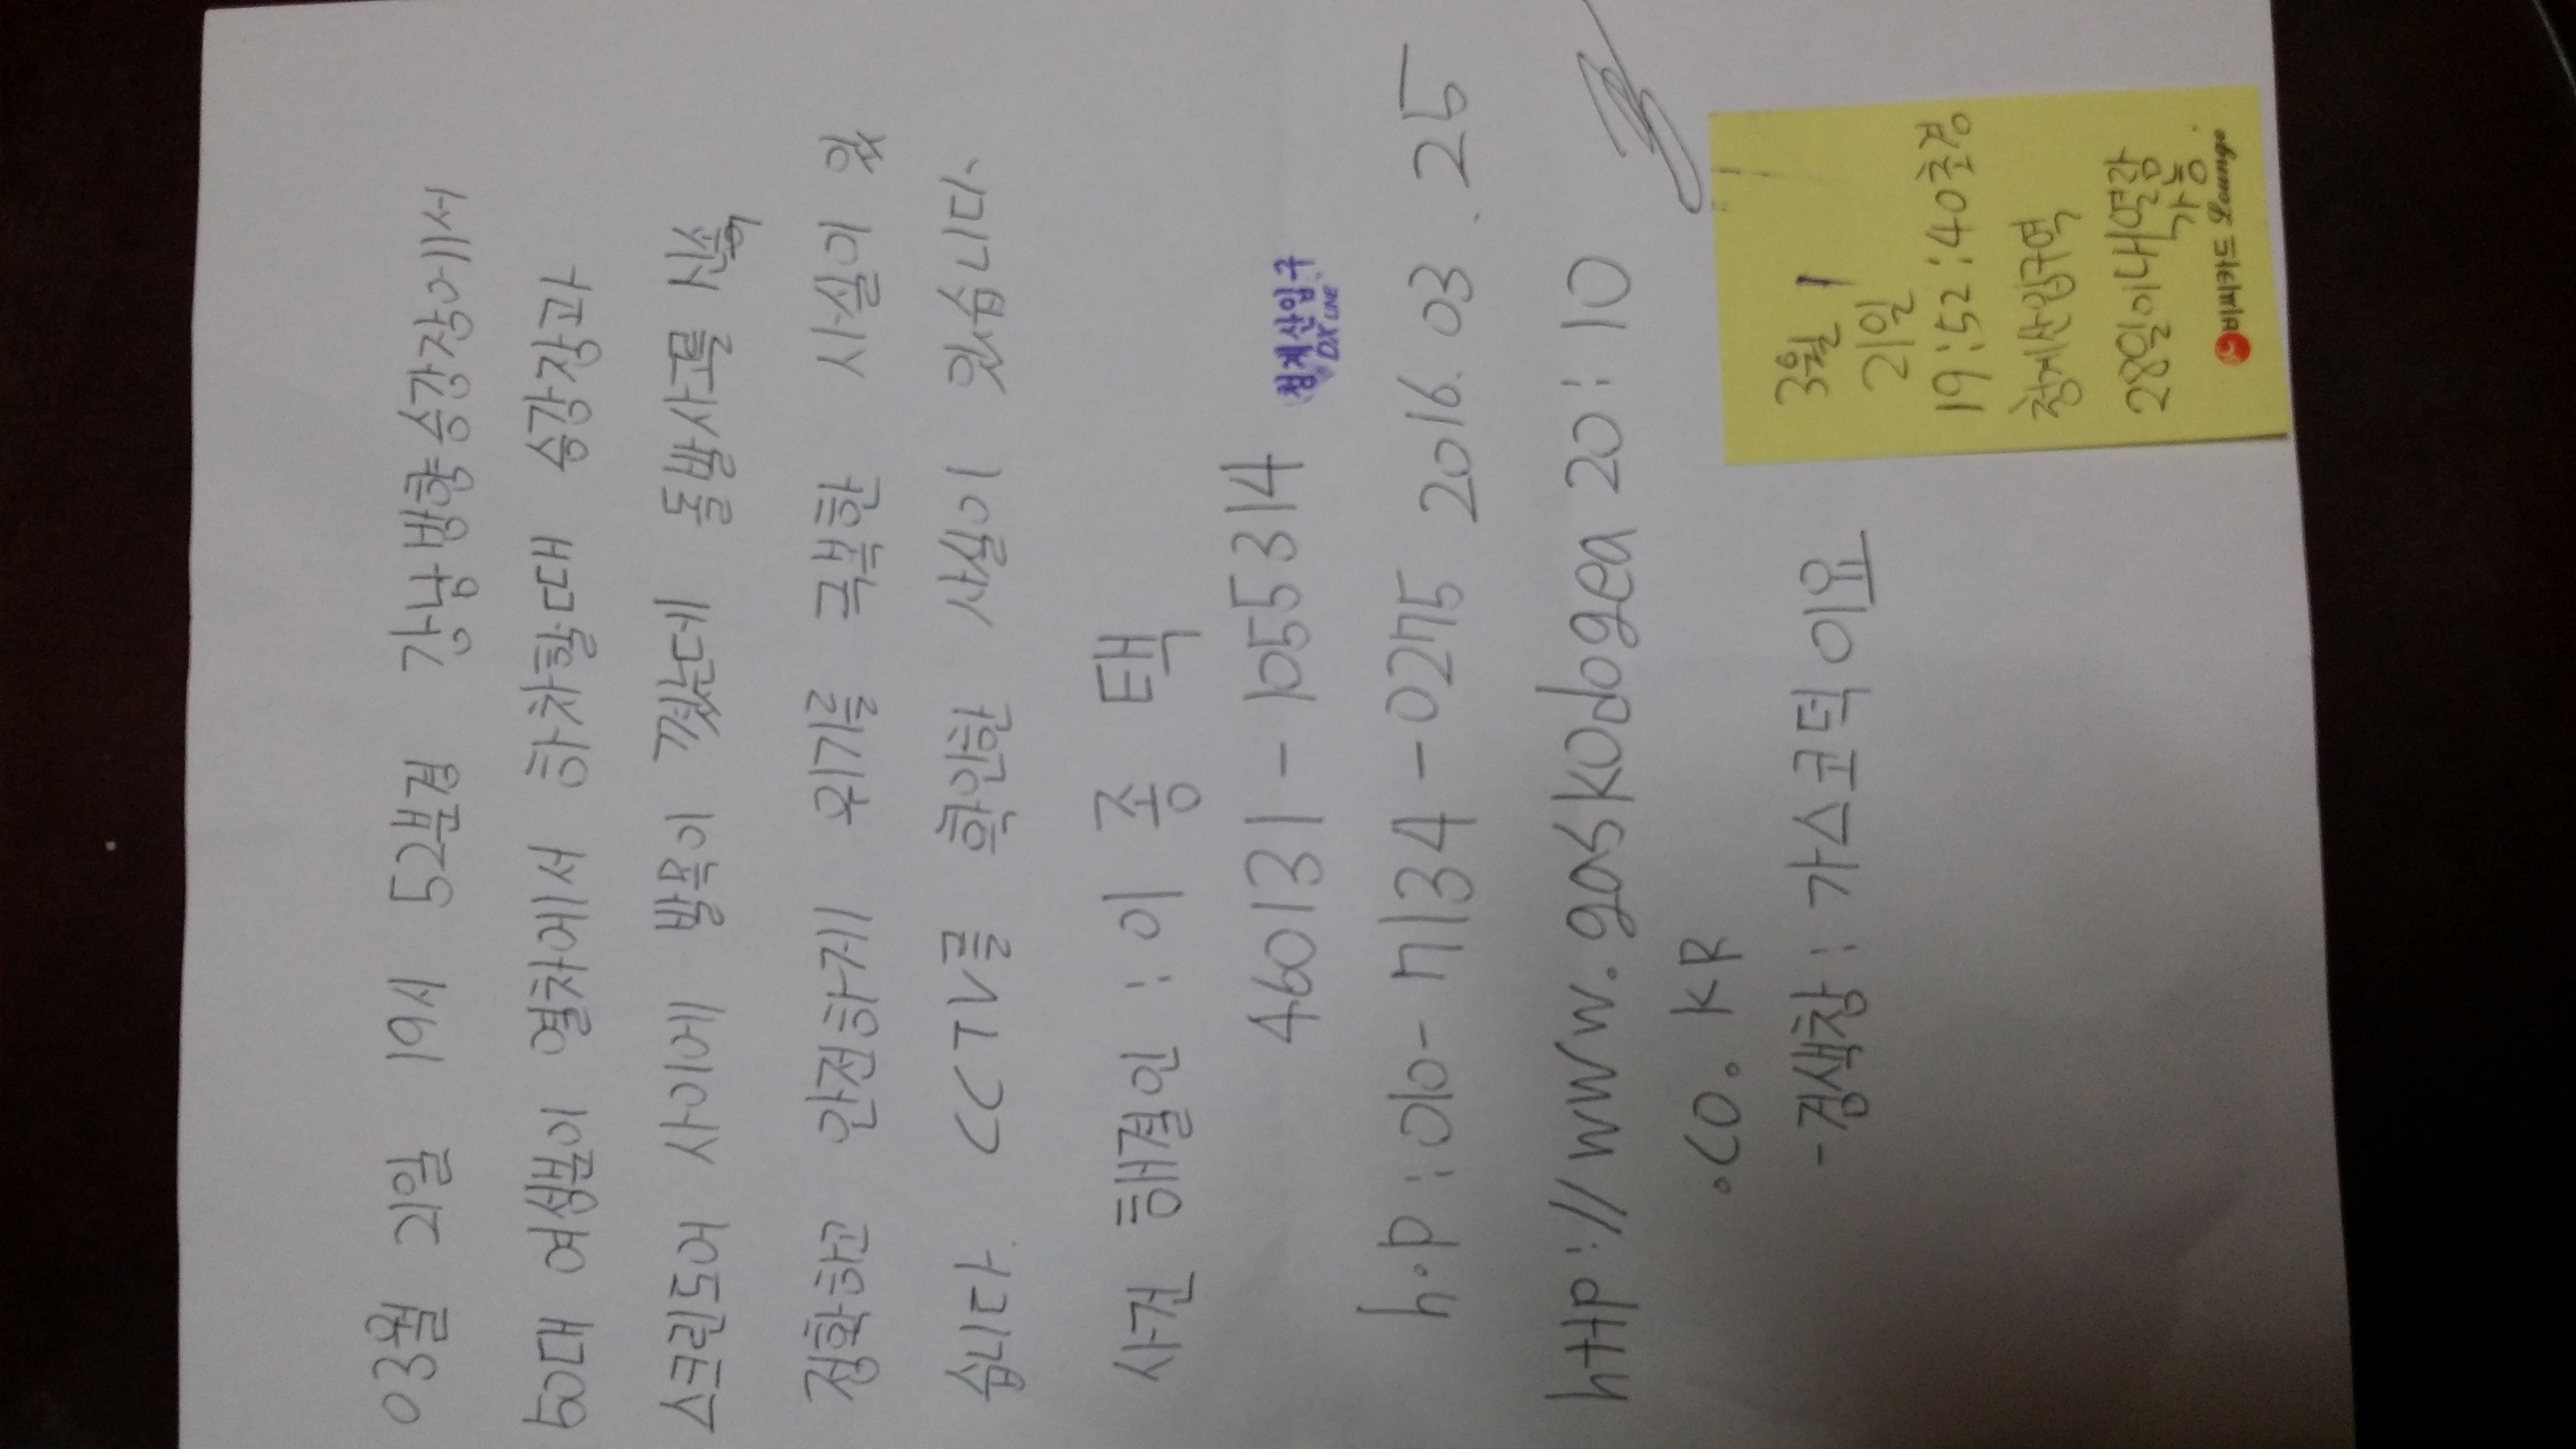 03월 21일 19시 52분경 강남방향승강장에서
50대 여성분이 열차에서 하차할대 승강장과
스크린도어 사이에 발목이 꼈는데 돌발사고를 신속
정확하고 안전하게 위기를 극복한 사실이 있
습니다. CCTV를 확인한 사실이 있습니다.
사건 해결인 : 이 종 택
460131-1055314
청계산입구
DX LINE
h.p : 010-7134-0275 2016.03.25
http://www.gaskodogea 20:10
.co.kR
-검색창 : 가스코덕이요
3월
21일
19:52:40초경
청계산입구역
28일이내열람
가능.
비씨카드 Lounge